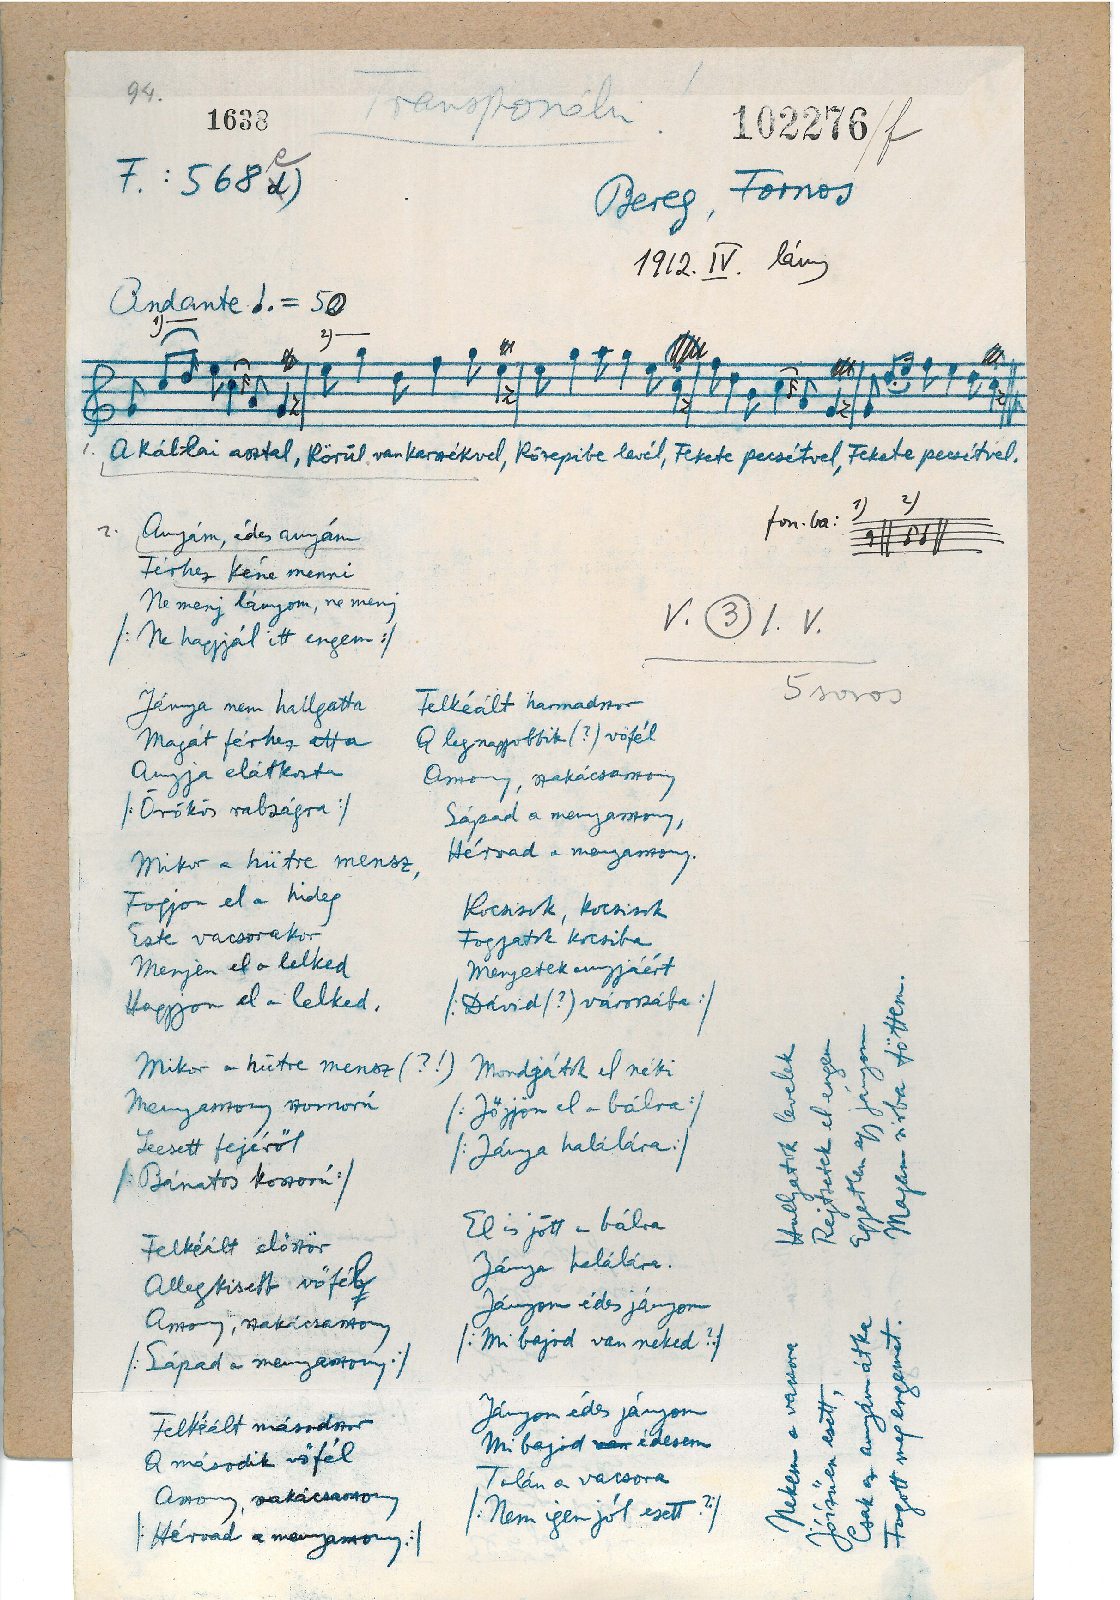 94.
Transponálni!
1638
102276/f
F.: 568 e)
Bereg, Fornos
1912. IV. lány
Andante ♩. = 50
1)
2)
1. A kállai asztal, Körül van karszékvel, Közepibe levél, Fekete pecsétvel, Fekete pecsétvel.
fon.ba: 1) 2)
2. Anyám, édes anyám
Férhez kéne menni
Ne menj lányom, ne menj
/: Ne hagyjál itt engem :/
V. 3 1. V.
5 soros
Jánya nem hallgatta
Magát férhez atta
Anyja elátkozta
/: Örökös rabságra :/
Mikor a hütre mensz,
Fogjon el a hideg
Este vacsorakor
Menjen el a lelked
Hagyjon el a lelked.
Mikor a hütre mensz (?!)
Menyasszony szomorú
Leesett fejéről
/: Bánatos koszorú :/
Felkéált először
A llegkisebb vőfély
Asszony, szakácsasszony
/: Sápad a menyasszony :/
Felkéált másodszor
A második vőfél
Asszony, szakácsasszony
/: Hérvad a menyasszony :/
Felkéált harmadszor
A legnagyobbik (?) vőfél
Asszony, szakácsasszony
Sápad a menyasszony,
Hérvad a menyasszony.
Kocsisok, kocsisok
Fogjatok kocsiba
Menjetek anyjáért
/: Dávid (?) városzába :/
Mondjátok el néki
/: Jőjjön el a bálra :/
/: Jánya halálára :/
El is jött a bálra
Jánya halálára.
Jányom édes jányom
/: Mi bajod van neked ? :/
Jányom édes jányom
Mi bajod van édesem
Talán a vacsora
/: Nem igen jól esett ? :/
Nekem a vacsora
Jóízüen esett,
Csak az anyám átka
Fogott meg engemet.
Hullyatok levelek
Rejtsetek el engem
Egyetlen egy jányom
Magam sirba töttem.